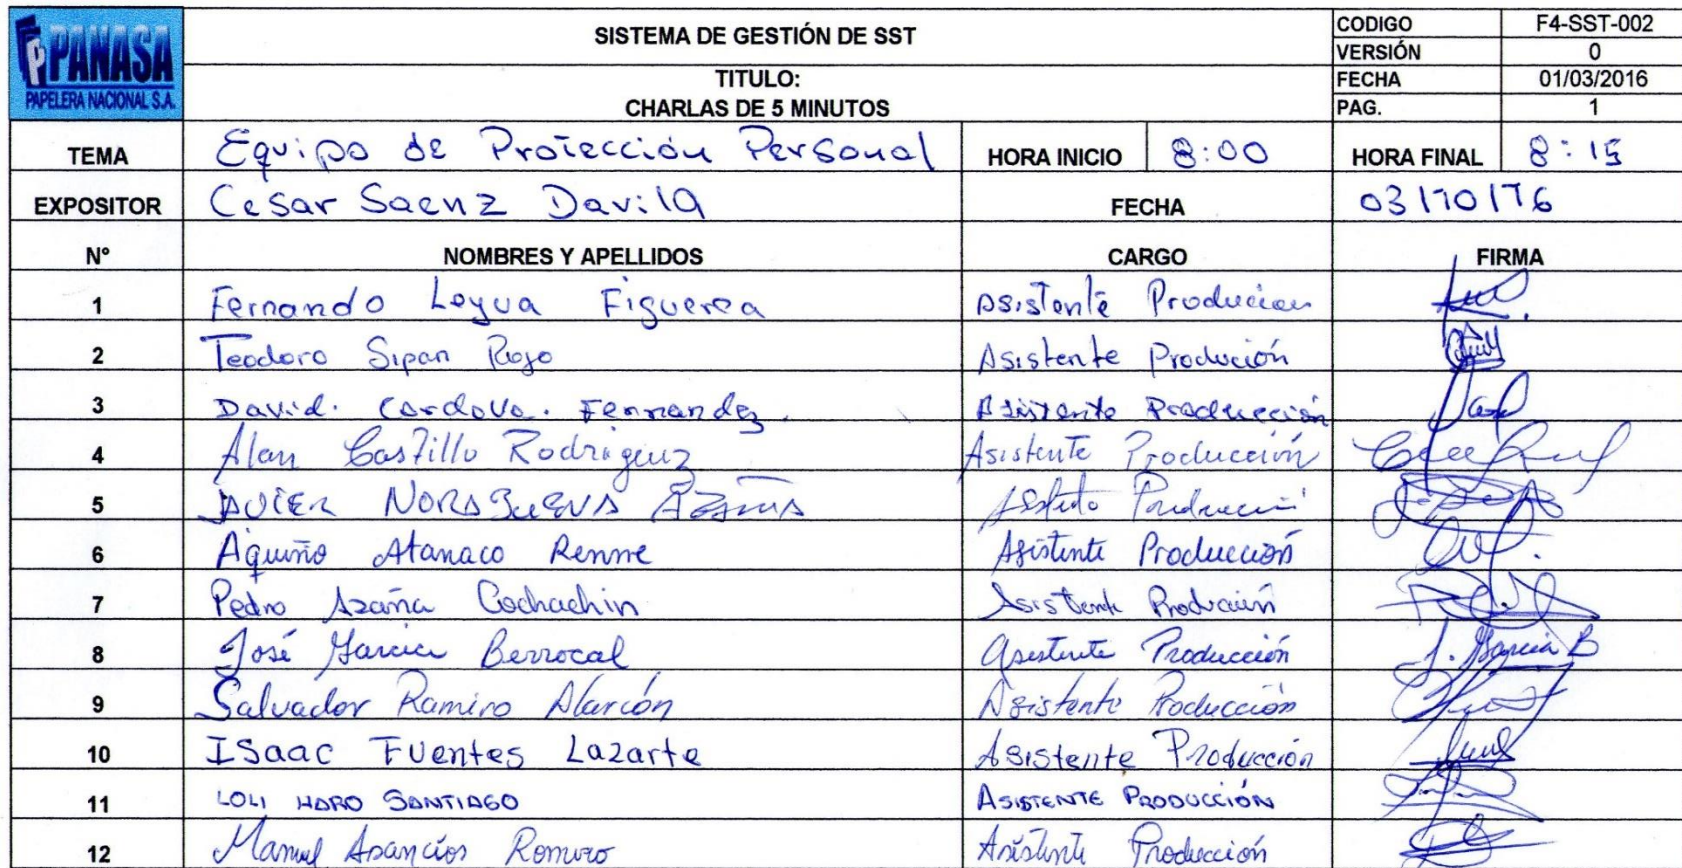 PANASA
PAPELERA NACIONAL S.A.
SISTEMA DE GESTIÓN DE SST
CODIGO F4-SST-002
VERSIÓN 0
TITULO:
CHARLAS DE 5 MINUTOS
FECHA 01/03/2016
PAG. 1
TEMA Equipo de Protección Personal HORA INICIO 8:00 HORA FINAL 8:15
EXPOSITOR Cesar Saenz Davila FECHA 03/10/16
N° NOMBRES Y APELLIDOS CARGO FIRMA
1 Fernando Leyva Figueroa Asistente Produccion
2 Teodoro Sipan Rojo Asistente Produción
3 David. Cordova. Fernandez. Asistente Producción
4 Alan Castillo Rodriguez Asistente Producción
5 JAVIER NORABUENA AZAÑA Producción
6 Aquiño Atanaco Renne Asistente Producción
7 Pedro Azaña Cochachin Asistente Producción
8 José Garcia Berrocal Asistente Producción J. Garcia B
9 Salvador Ramiro Alarcón Asistente Producción
10 ISaac Fuentes Lazarte Asistente Producción
11 LOLI HARO SANTIAGO ASISTENTE PRODUCCIÓN
12 Manuel Romero Asistente Producción